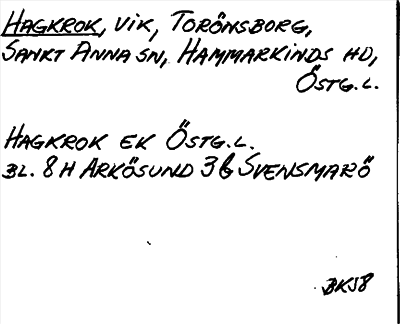 HAGKROK, VIK, TORÖNSBORG,
SANKT ANNA SN, HAMMARKINDS HD,
ÖSTG.L.
HAGKROK EK ÖSTG.L.
BL. 8H ARKÖSUND 3b SVENSMARÖ
BK58